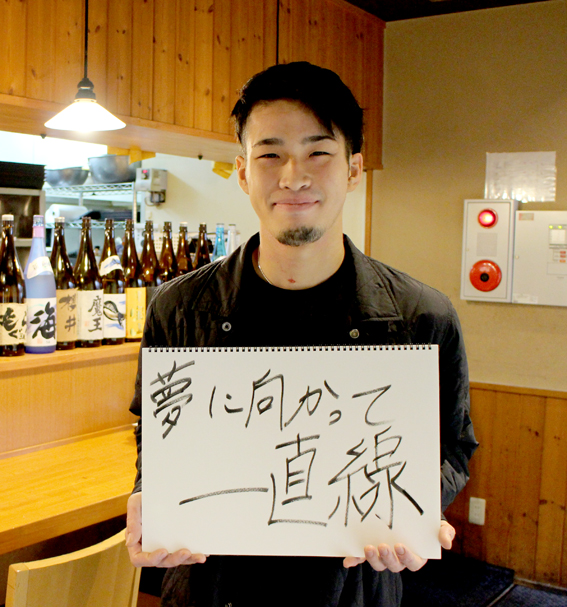 夢に向かって
一直線
海
桜井
魔王